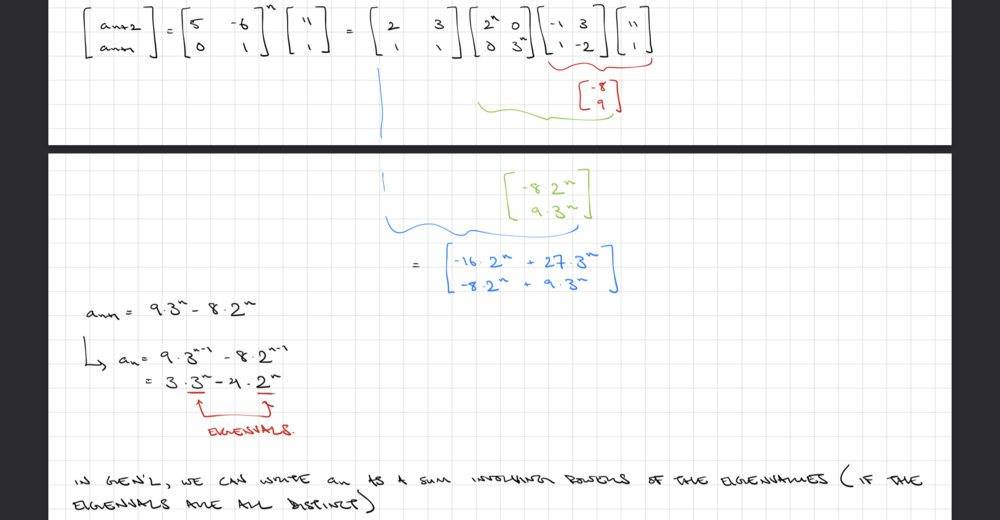 [an+2 an+1] = [5 -6 0 1]^n [11 1] = [2 3 1 1] [2^n 0 0 3^n] [-1 3 1 -2] [11 1]
[-8 9]
[-8·2^n 9·3^n]
= [-16·2^n + 27·3^n -8·2^n + 9·3^n]
an+1 = 9·3^n - 8·2^n
↳ an = 9·3^n-1 - 8·2^n-1
= 3·3^n - 4·2^n
EIGENVALS.
IN GEN'L, WE CAN WRITE an AS A SUM INVOLVING POWERS OF THE EIGENVALUES (IF THE
EIGENVALS ARE ALL DISTINCT)